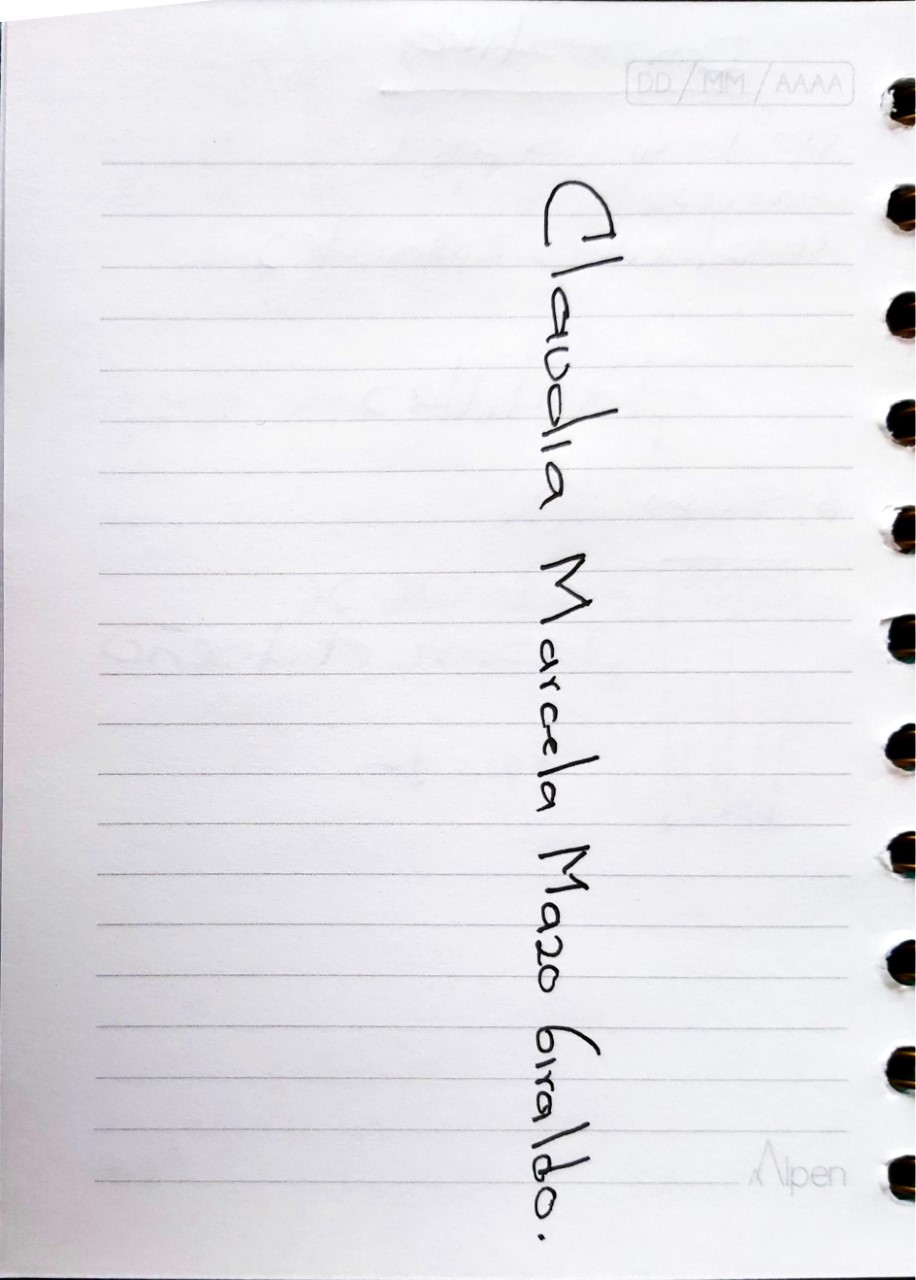 DD / MM / AAAA
Claudia Marcela Mazo Giraldo.
Alpen